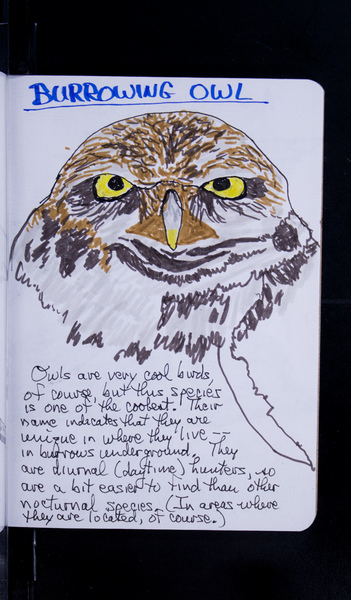 BURROWING OWL
Owls are very cool birds,
of course, but this species
is one of the coolest. Their
name indicates that they are
unique in where they live --
in burrows underground. They
are diurnal (daytime) hunters, so
are a bit easier to find than other
nocturnal species. (In areas where
they are located, of course.)